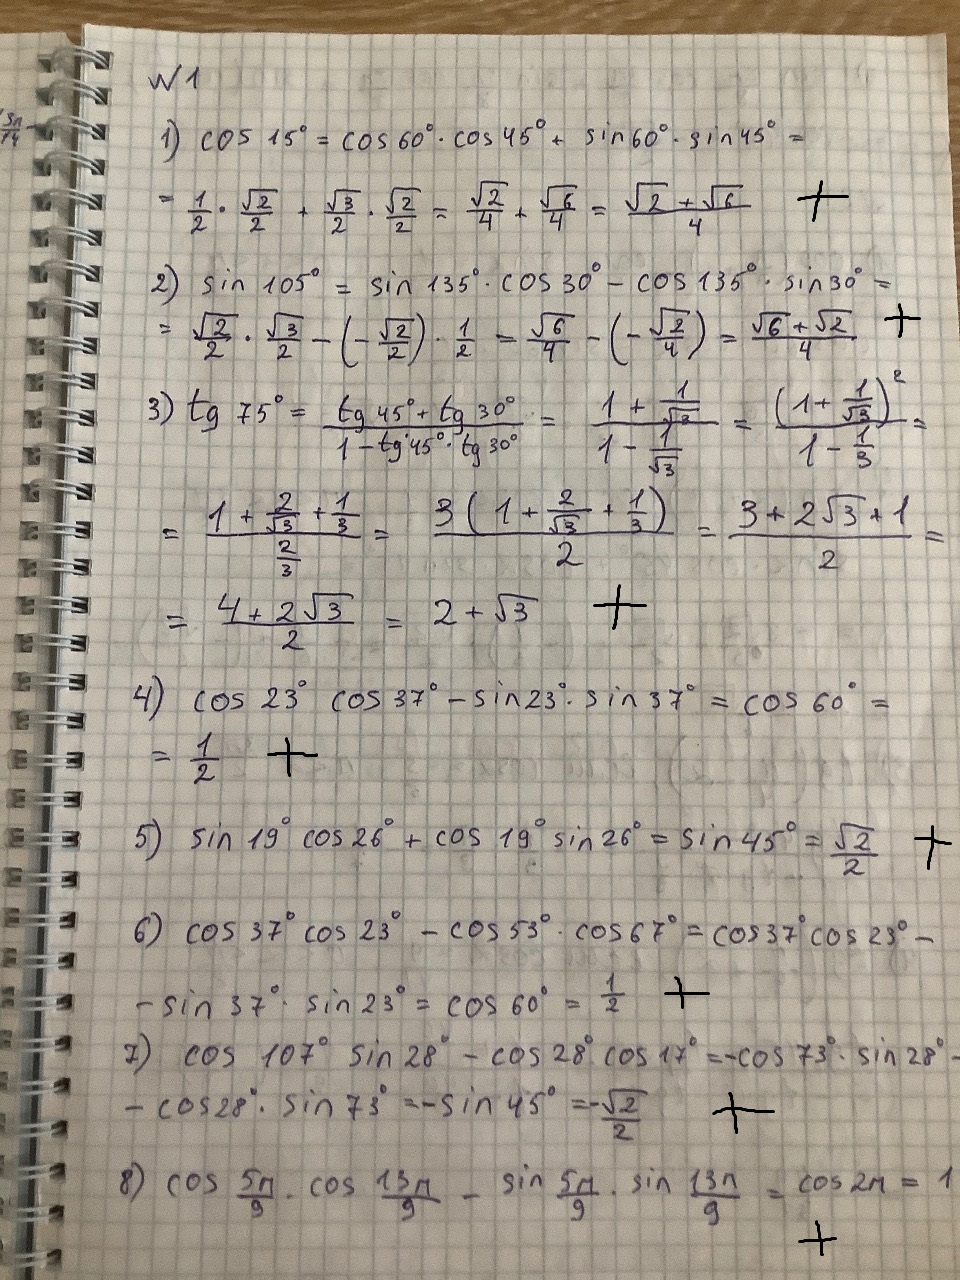 N1
1) cos 15° = cos 60° · cos 45° + sin 60° · sin 45° =
= 1/2 · √2/2 + √3/2 · √2/2 = √2/4 + √6/4 = (√2 + √6)/4 +
2) sin 105° = sin 135° · cos 30° – cos 135° · sin 30° =
= √2/2 · √3/2 – (–√2/2) · 1/2 = √6/4 – (–√2/4) = (√6 + √2)/4 +
3) tg 75° = (tg 45° + tg 30°)/(1 – tg 45° · tg 30°) = (1 + 1/√3)/(1 – 1/√3) = (1 + 1/√3)²/(1 – 1/3) =
= (1 + 2/√3 + 1/3)/(2/3) = 3(1 + 2/√3 + 1/3)/2 = (3 + 2√3 + 1)/2 =
= (4 + 2√3)/2 = 2 + √3 +
4) cos 23° cos 37° – sin 23° · sin 37° = cos 60° =
= 1/2 +
5) sin 19° cos 26° + cos 19° sin 26° = sin 45° = √2/2 +
6) cos 37° cos 23° – cos 53° · cos 67° = cos 37° cos 23° –
– sin 37° · sin 23° = cos 60° = 1/2 +
7) cos 107° sin 28° – cos 28° cos 17° = –cos 73° · sin 28° –
– cos 28° · sin 73° = –sin 45° = –√2/2 +
8) cos 5π/9 · cos 13π/9 – sin 5π/9 · sin 13π/9 = cos 2π = 1
+